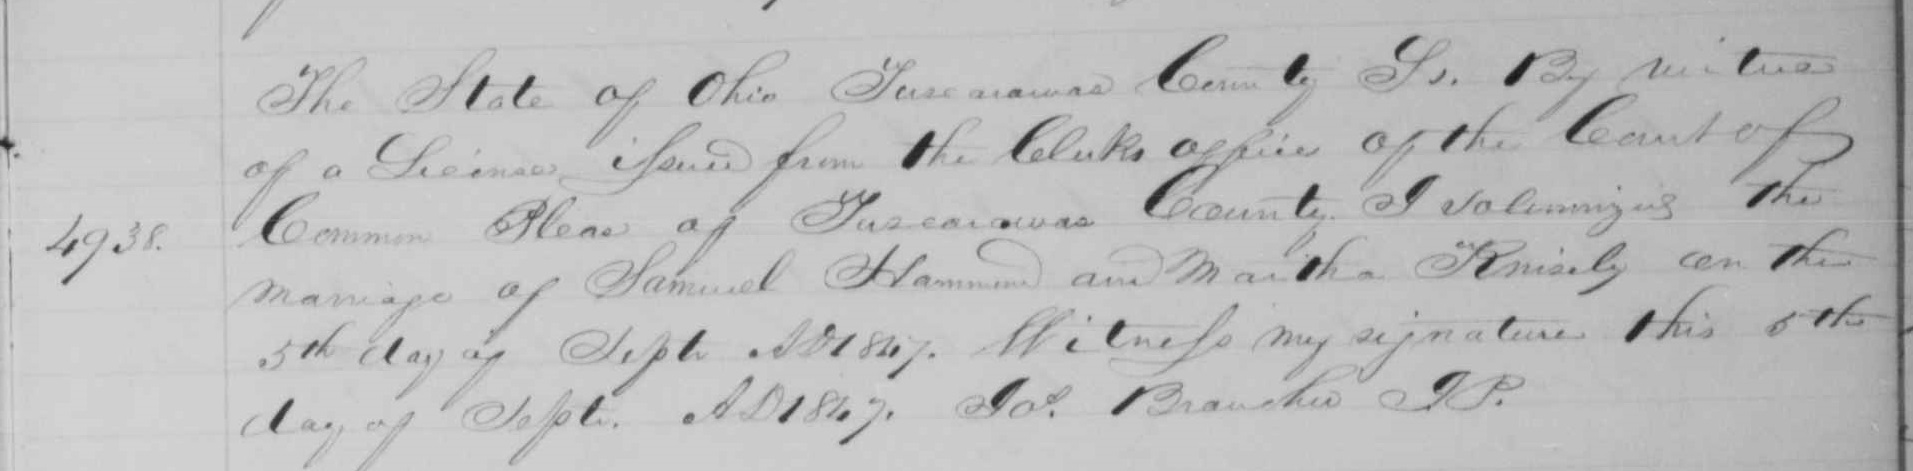 The State of Ohio Tuscarawas County Ss. By virtue
of a License issued from the Clerks office of the Court of
Common Pleas of Tuscarawas County. I solemnized the
4938.
marriage of Samuel Hammond and Martha Knisely on the
5th day of Sept. AD 1847. Witness my signature this 5th
day of Sept. AD 1847. Jos. Braucher JP.